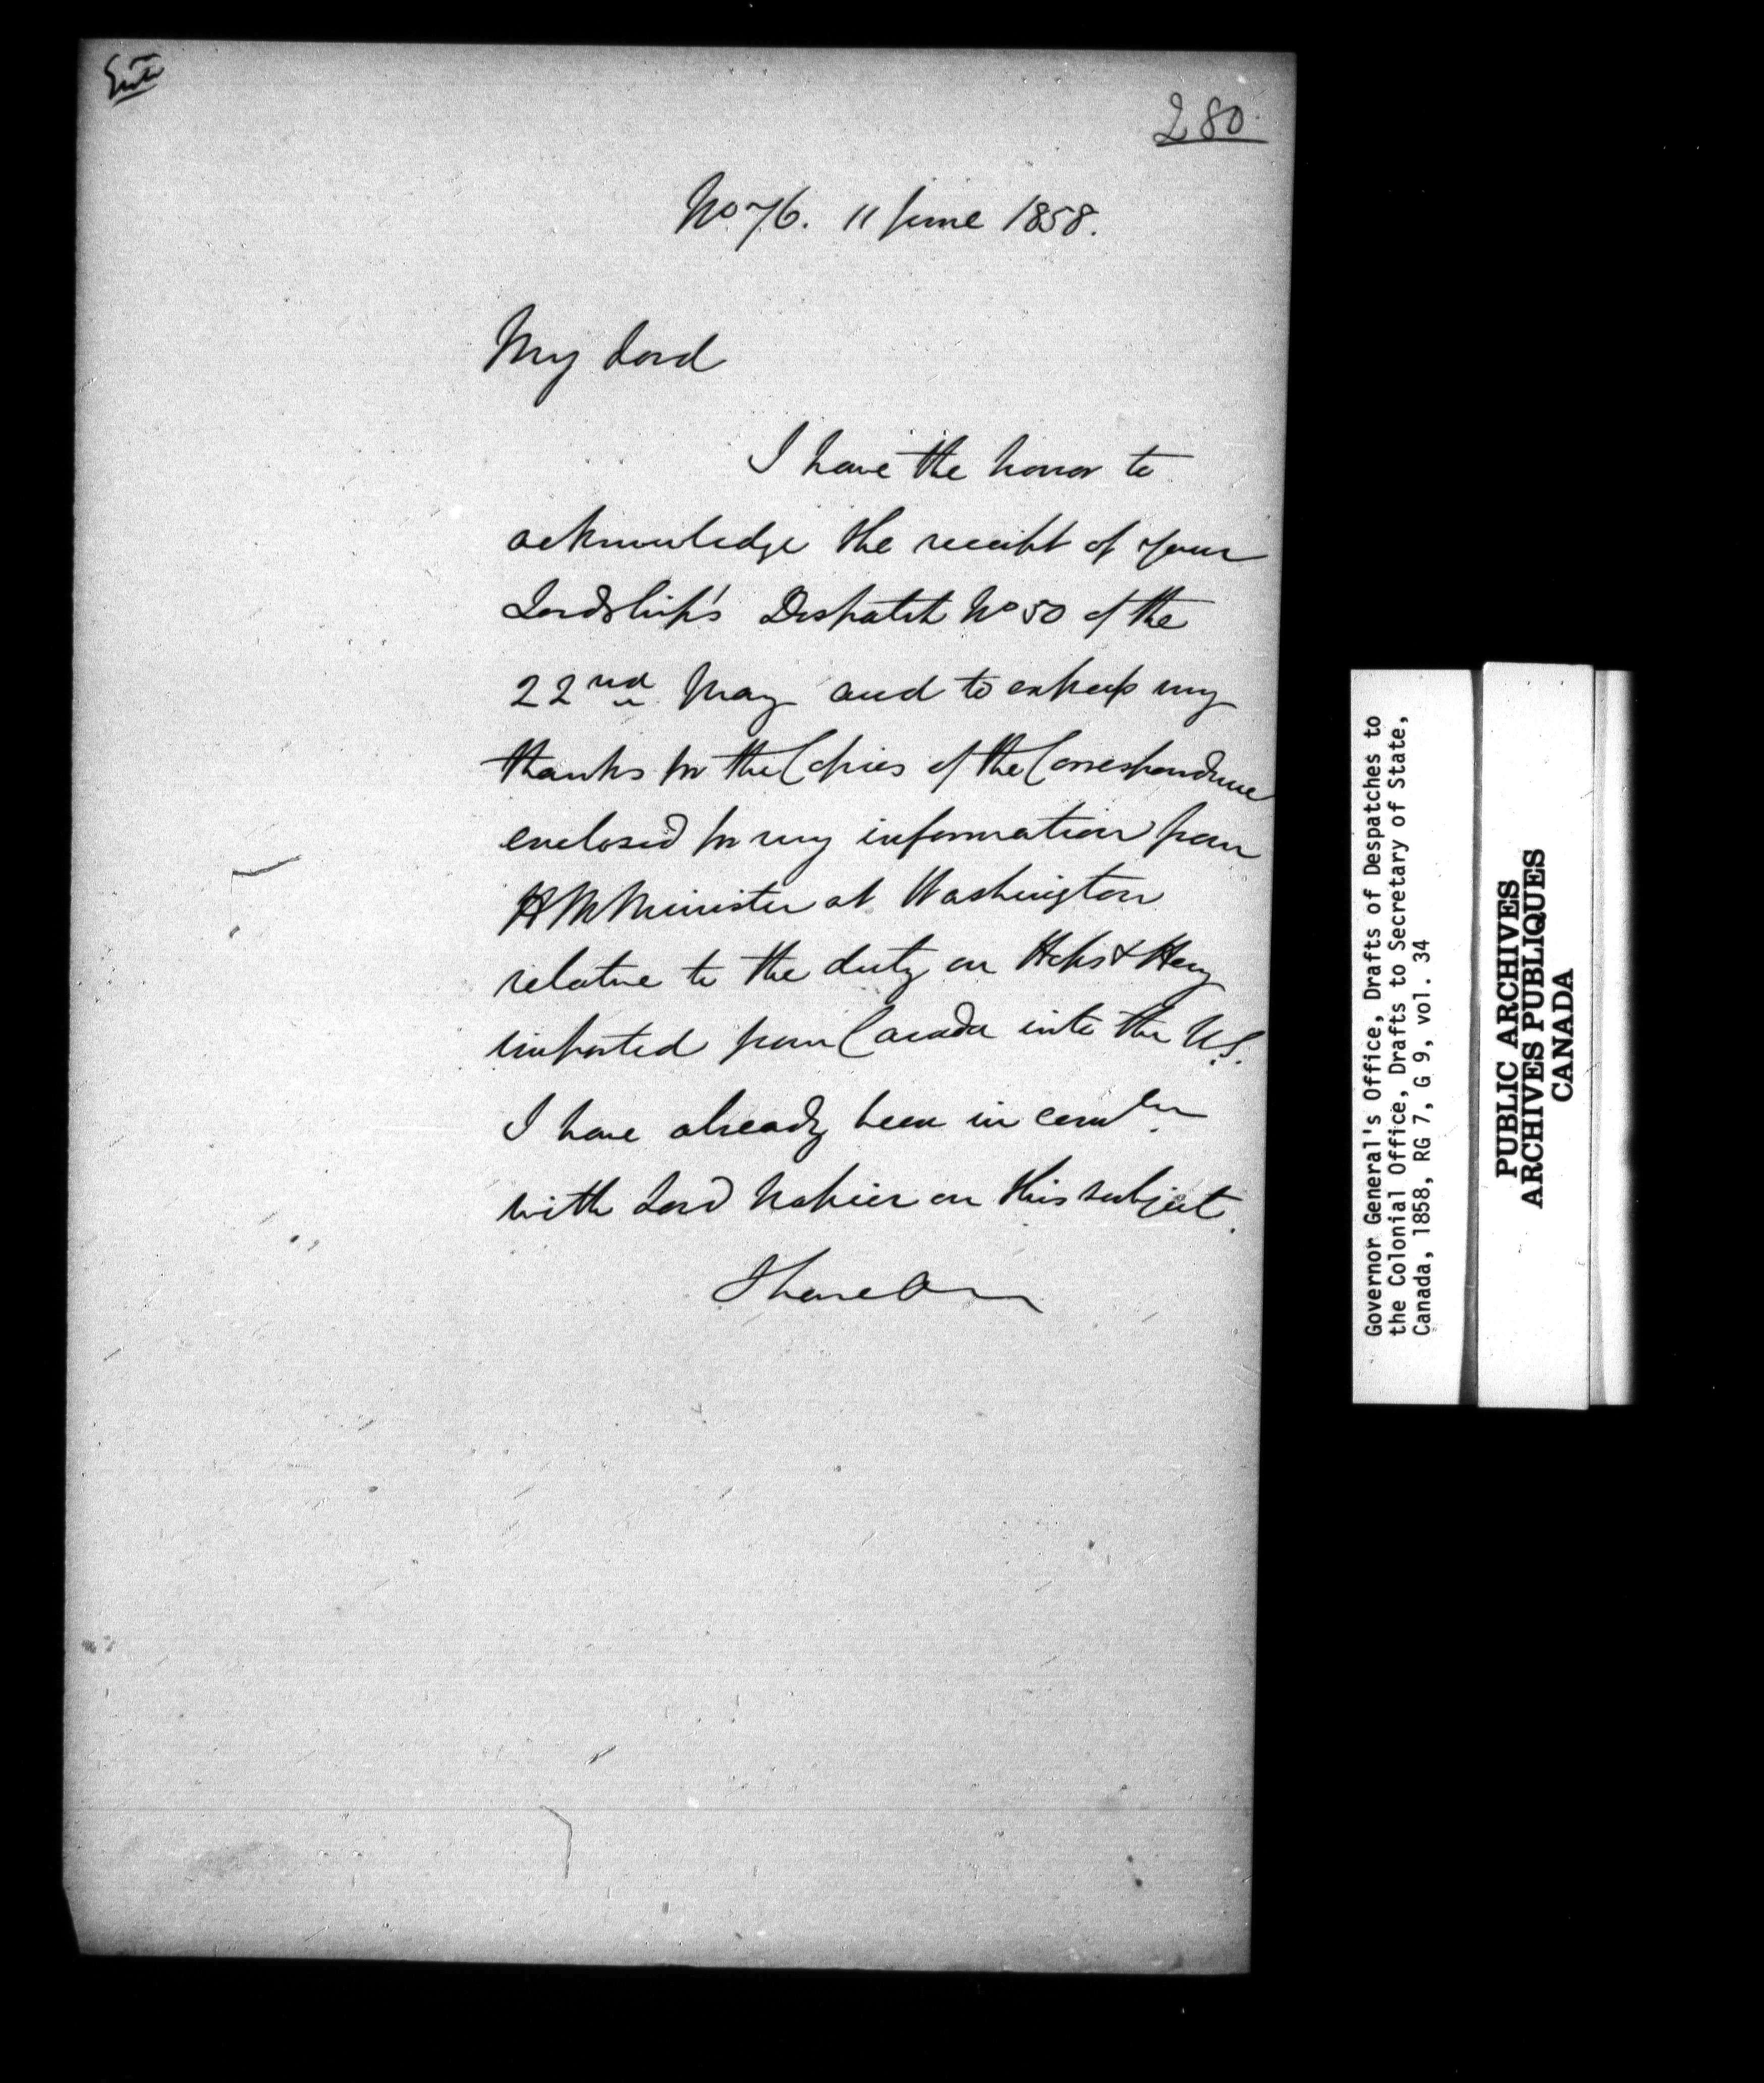 Entd
280
No 76. 11 June 1858.
My Lord
I have the honor to
acknowledge the receipt of your
Lordship's Despatch No 50 of the
22nd May and to express my
thanks for the Copies of the Correspondence
enclosed for my information from
H M Minister at Washington
relative to the duty on Hops & Hay
imported from Canada into the U.S.
I have already been in
with Lord Napier on this subject.
I have
Governor General's Office, Drafts of Despatches to
the Colonial Office, Drafts to Secretary of State,
Canada, 1858, RG 7, G 9, vol. 34
PUBLIC ARCHIVES
ARCHIVES PUBLIQUES
CANADA